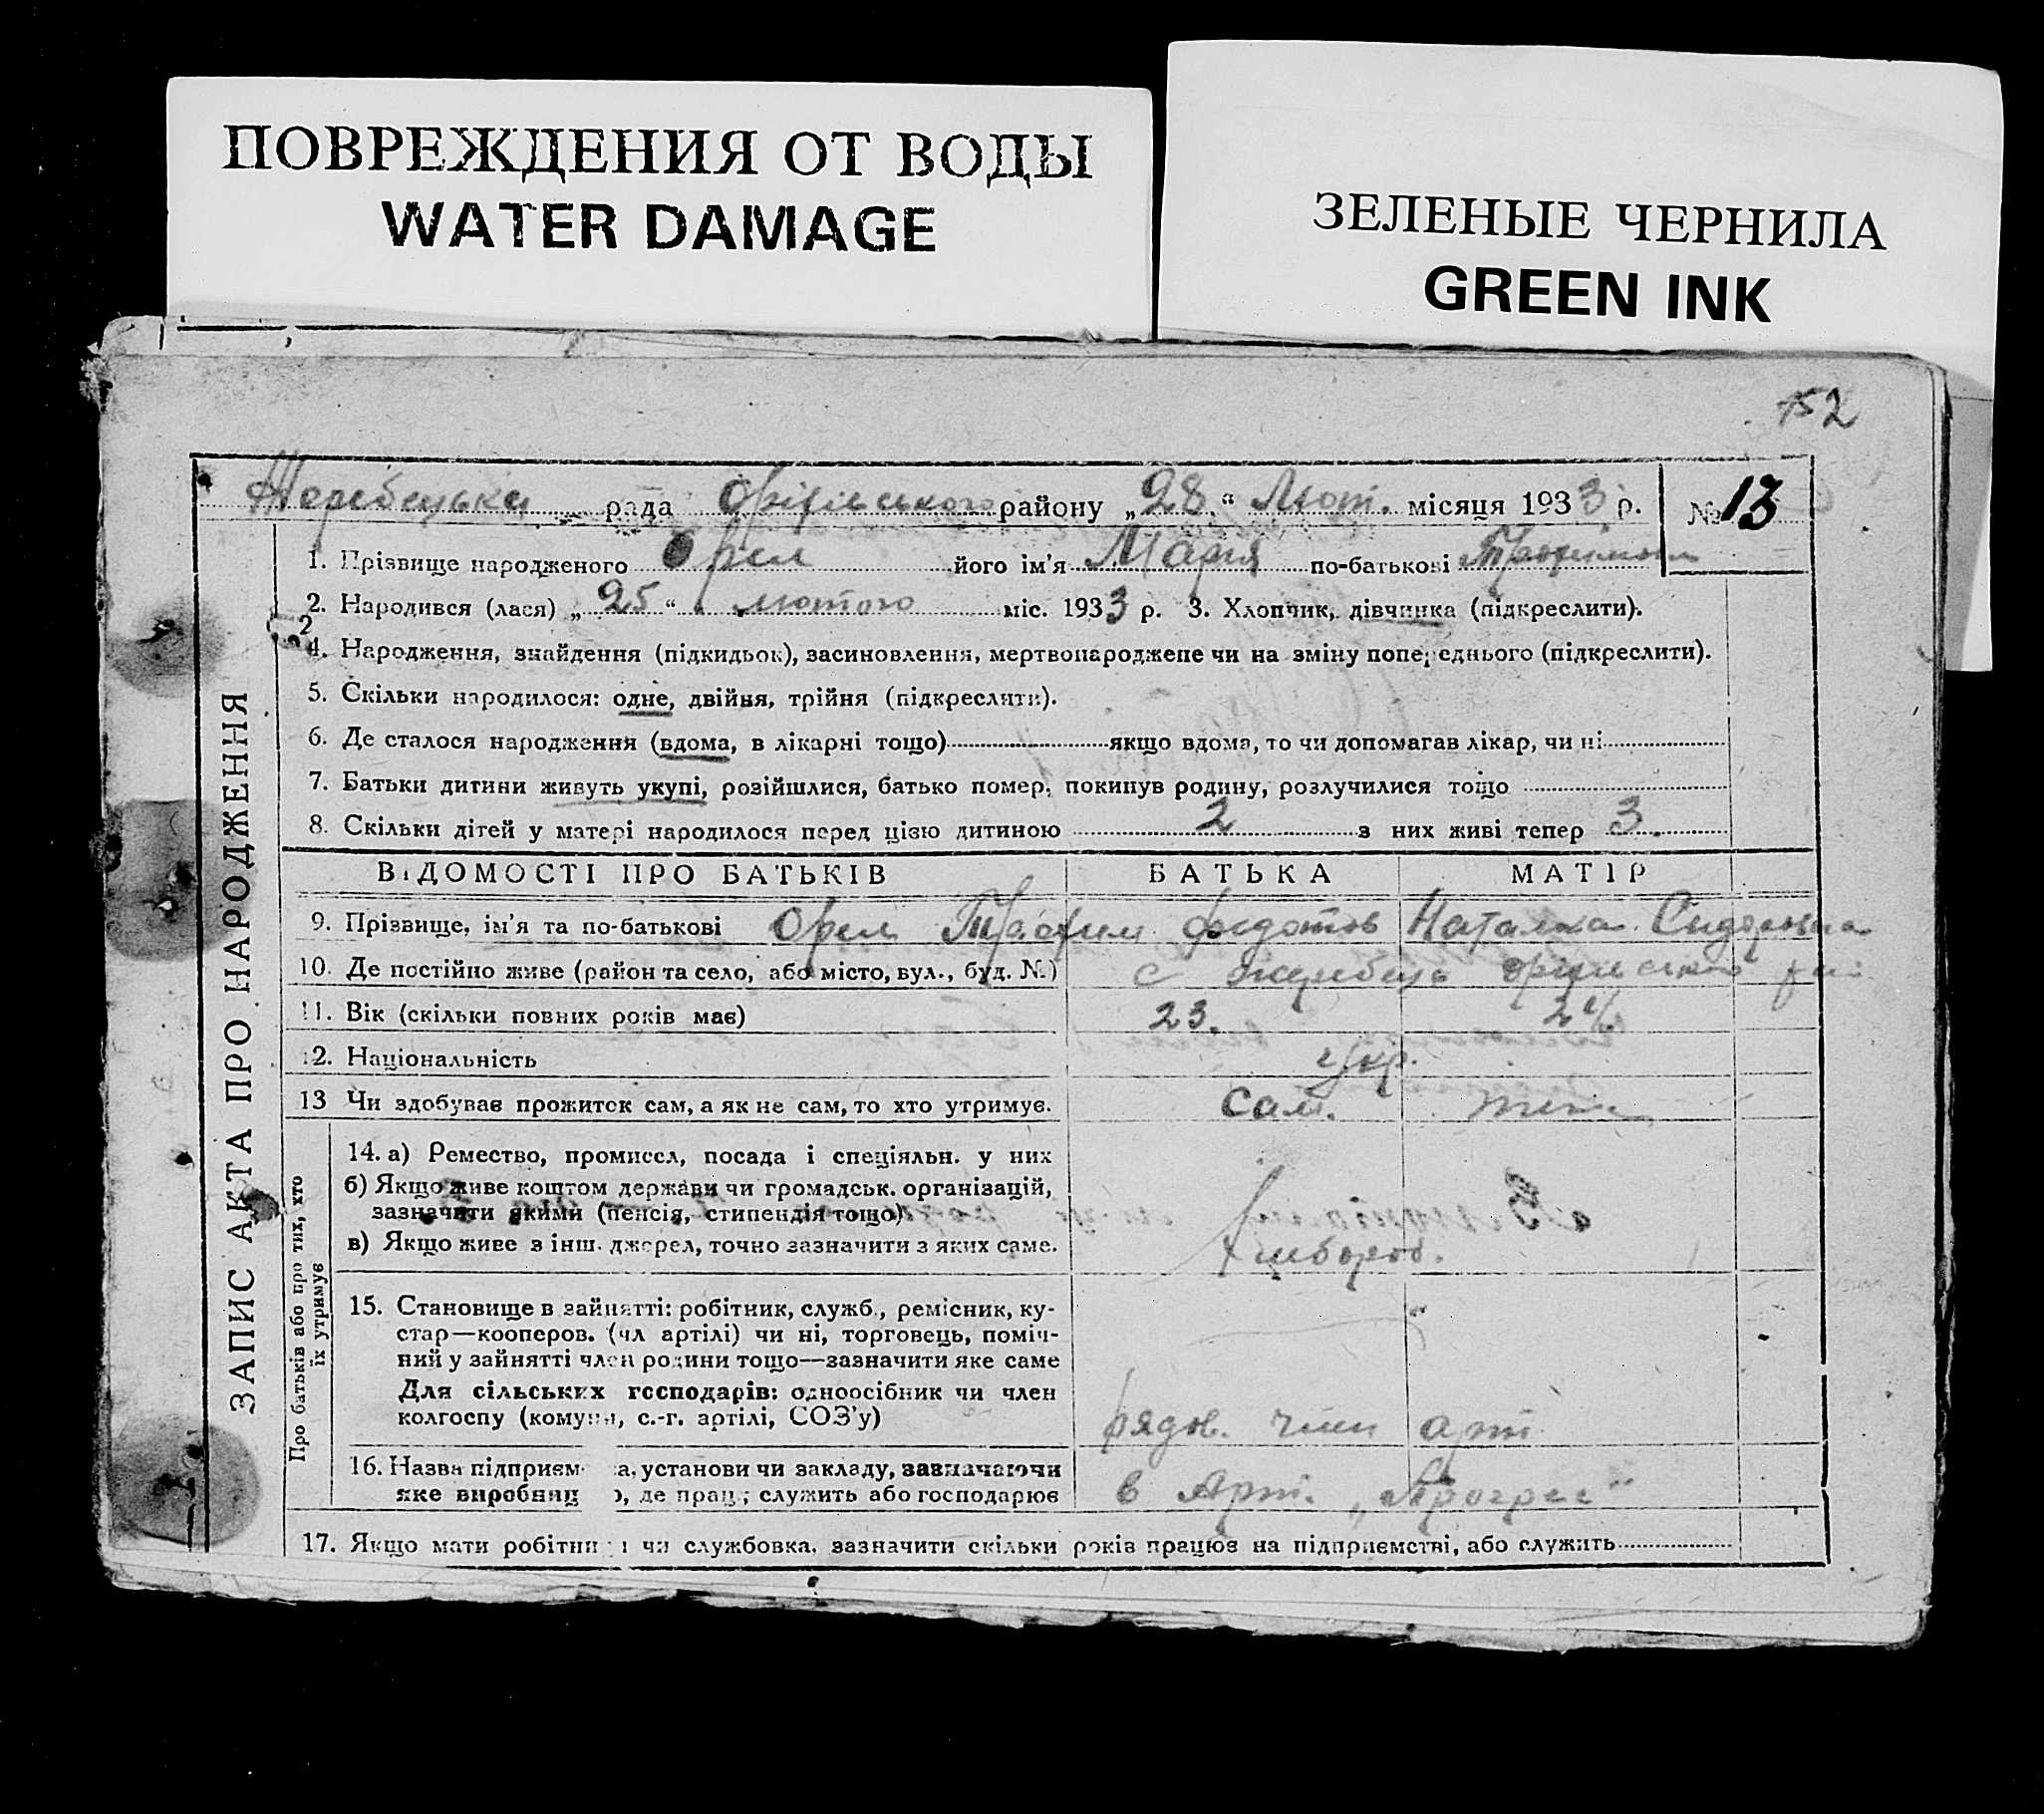 ПОВРЕЖДЕНИЯ ОТ ВОДЫ
WATER DAMAGE
ЗЕЛЕНЫЕ ЧЕРНИЛА
GREEN INK
152
Жеребецька рада Оріхівського району „28“ Лют. місяця 1933 р. № 13
ЗАПИС АКТА ПРО НАРОДЖЕННЯ
1. Прізвище народженого Орел його ім'я Марія по-батькові
2. Народився (лася) „25“ лютого міс. 1933 р. 3. Хлопчик, дівчинка (підкреслити).
4. Народження, знайдення (підкидьок), засиновлення, мертвонароджене чи на зміну попереднього (підкреслити).
5. Скільки народилося: одне, двійня, трійня (підкреслити).
6. Де сталося народження (вдома, в лікарні тощо) якщо вдома, то чи допомагав лікар, чи ні
7. Батьки дитини живуть укупі, розійшлися, батько помер, покинув родину, розлучилися тощо
8. Скільки дітей у матері народилося перед цією дитиною 2 з них живі тепер 3.
ВІДОМОСТІ ПРО БАТЬКІВ БАТЬКА МАТІР
9. Прізвище, ім'я та по-батькові Орел Трофим Федотов Наталка Сидоровна
10. Де постійно живе (район та село, або місто, вул., буд. №) с Жеребець
11. Вік (скільки повних років має) 23. 24
12. Національність Укр.
13 Чи здобуває прожиток сам, а як не сам, то хто утримує. Сам.
Про батьків або про тих, хто
їх утримує
14. а) Ремество, промисел, посада і спеціяльн. у них
б) Якщо живе коштом держави чи громадськ. організацій,
зазначити якими (пенсія, стипендія тощо)
в) Якщо живе з інш. джерел, точно зазначити з яких саме.
Хлибороб.
15. Становище в зайнятті: робітник, служб., ремісник, ку-
стар—кооперов. (чл артілі) чи ні, торговець, поміч-
ний у зайнятті член родини тощо—зазначити яке саме
Для сільських господарів: одноосібник чи член
колгоспу (комуни, с.-г. артілі, СОЗ'у) рядов. член арт.
16. Назва підприєм а, установи чи закладу, зазначаючи
яке виробниц о, де прац ; служить або господарює в Арт. „Прогрес“
17. Якщо мати робітни і чи службовка, зазначити скільки років працює на підприємстві, або служить